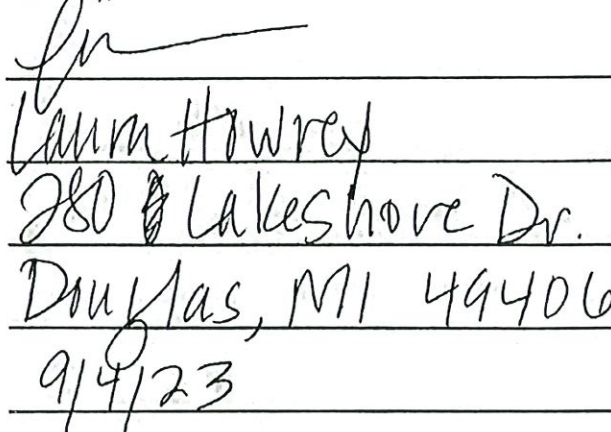 Laura Howrey
280 Lakeshore Dr.
Douglas, MI 49406
9/4/23